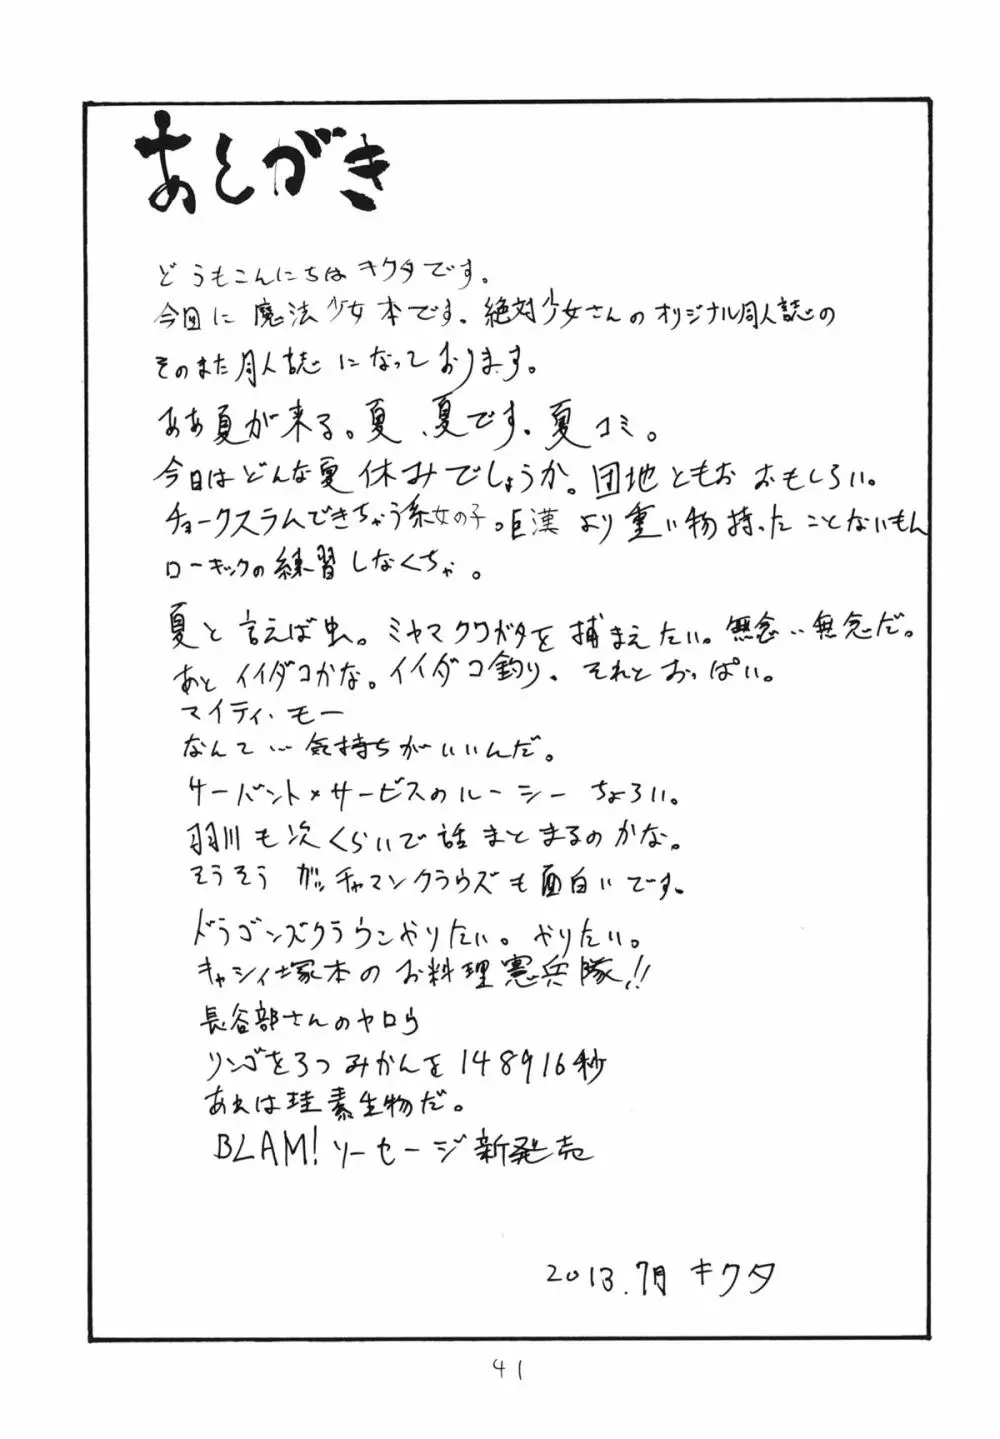 あとがき
どうもこんにちは キクタです。
今回に 魔法少女本です。絶対少女さんのオリジナル同人誌の
そのまた同人誌 になっております。
ああ夏が来る。夏、夏です、夏コミ。
今日はどんな夏休みでしょうか。団地ともお おもしろい。
チョークスラムできちゃう系女の子。巨漢 より重い物持ったことないもん
ローキックの練習しなくちゃ。
夏と言えば虫。ミヤマクワガタを 捕まえたい。無念‥無念だ。
あと イイダコかな。イイダコ釣り、それとおっぱい。
マイティ・モー
なんて…気持ちがいいんだ。
サーバント×サービスのルーシー ちょろい。
羽川も次くらいで話まとまるのかな。
そうそう ガッチャマンクラウズも面白いです。
ドラゴンズクラウンやりたい。やりたい。
キャシィ塚本のお料理憲兵隊!!
長谷部さんのヤロウ
リンゴを3つ みかんを148916秒
あれは珪素生物だ。
BLAM!ソーセージ新発売
2013.7月 キクタ
41